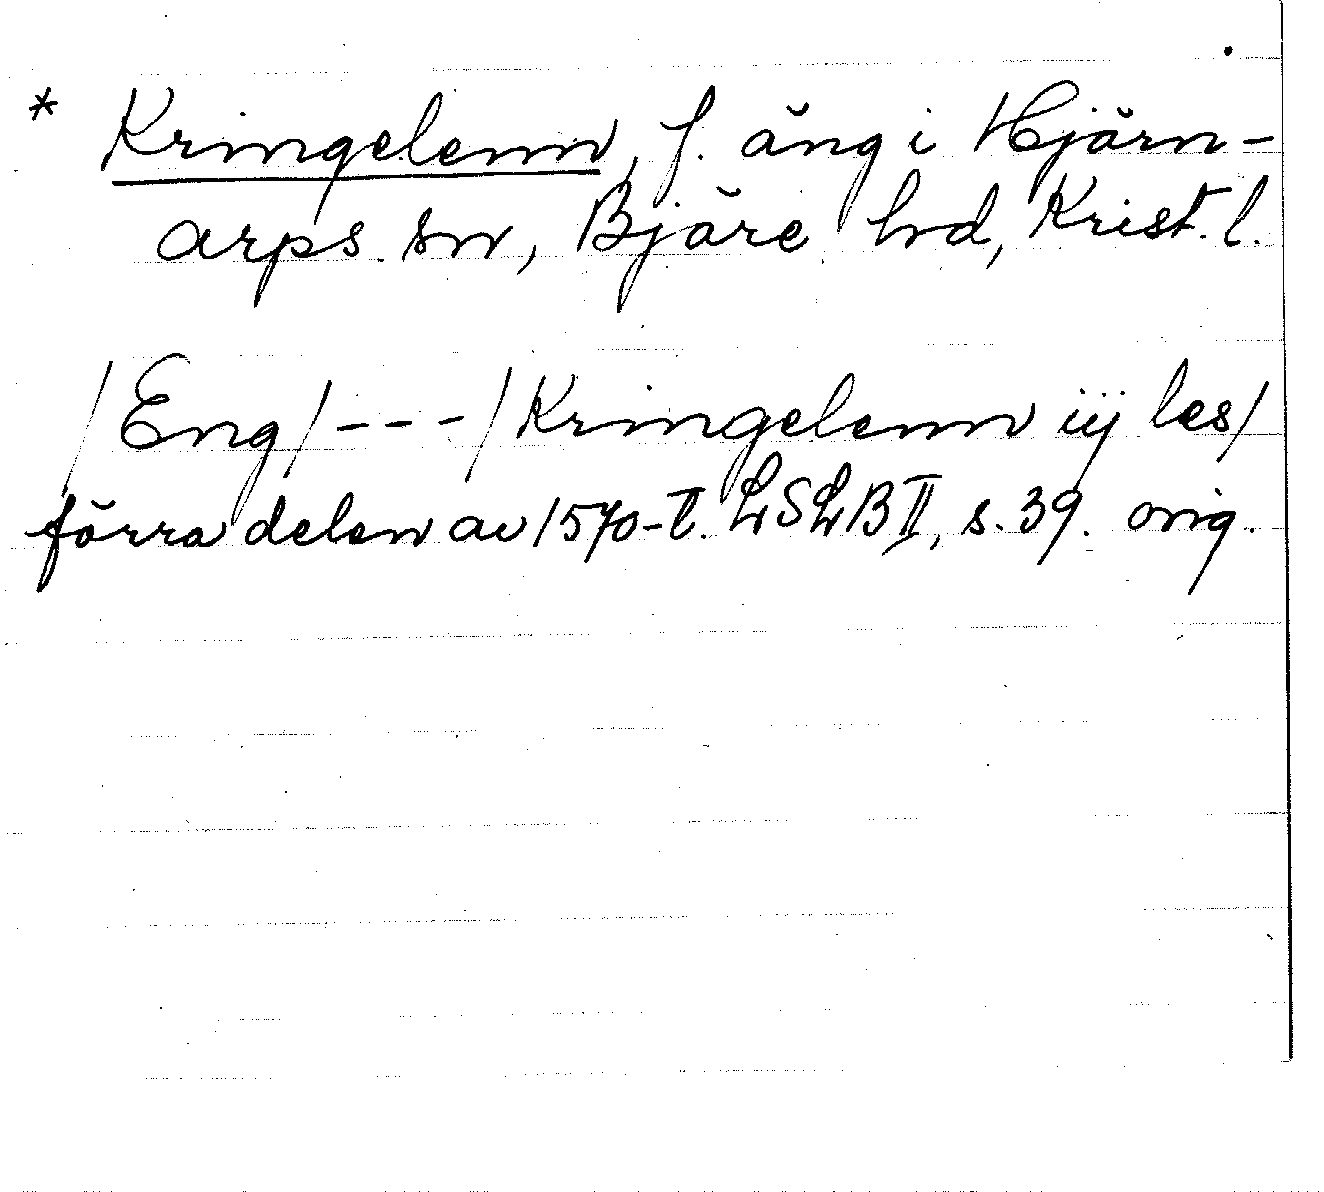 * Kringelenn, f. äng i Hjärn-
arps sn, Bjäre hd, Krist. l.
/Eng/ --- /Kringelenn iij les/
förra delen av 1570-t. LSLB II, s. 39. orig.